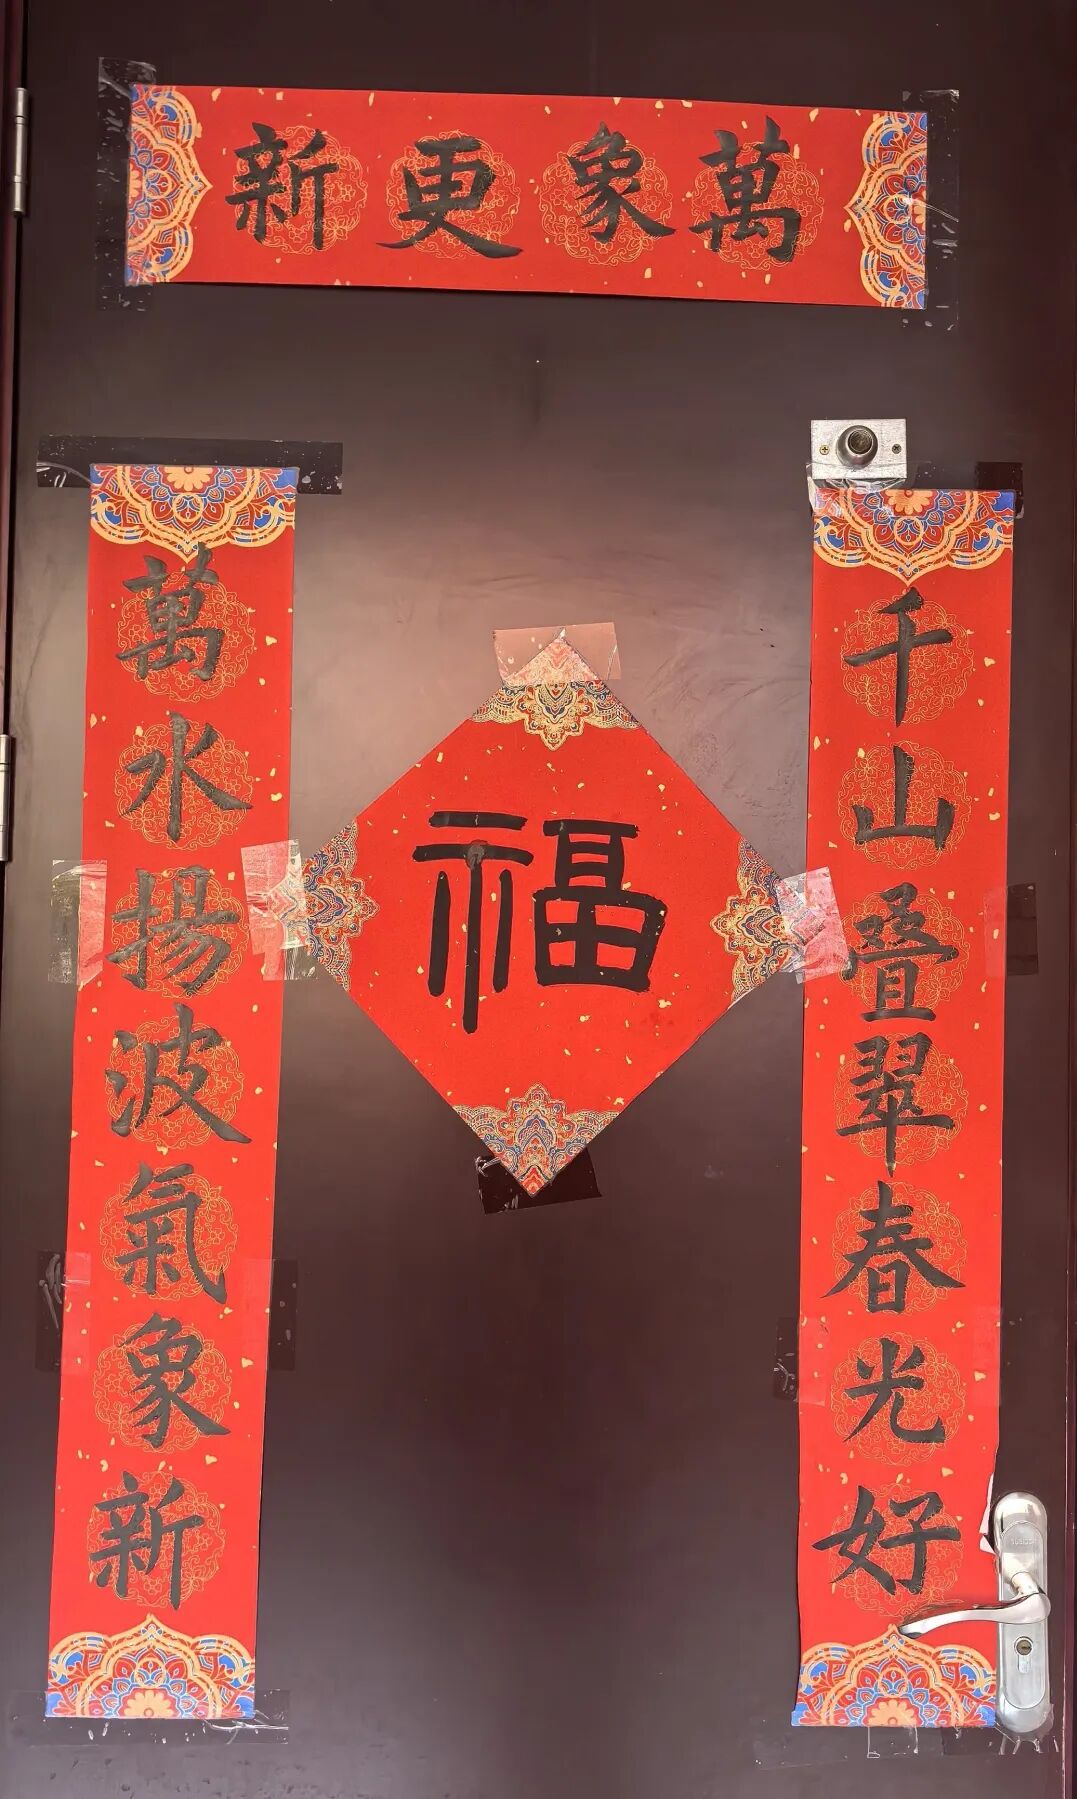 萬象更新
千山叠翠春光好
萬水揚波氣象新
福